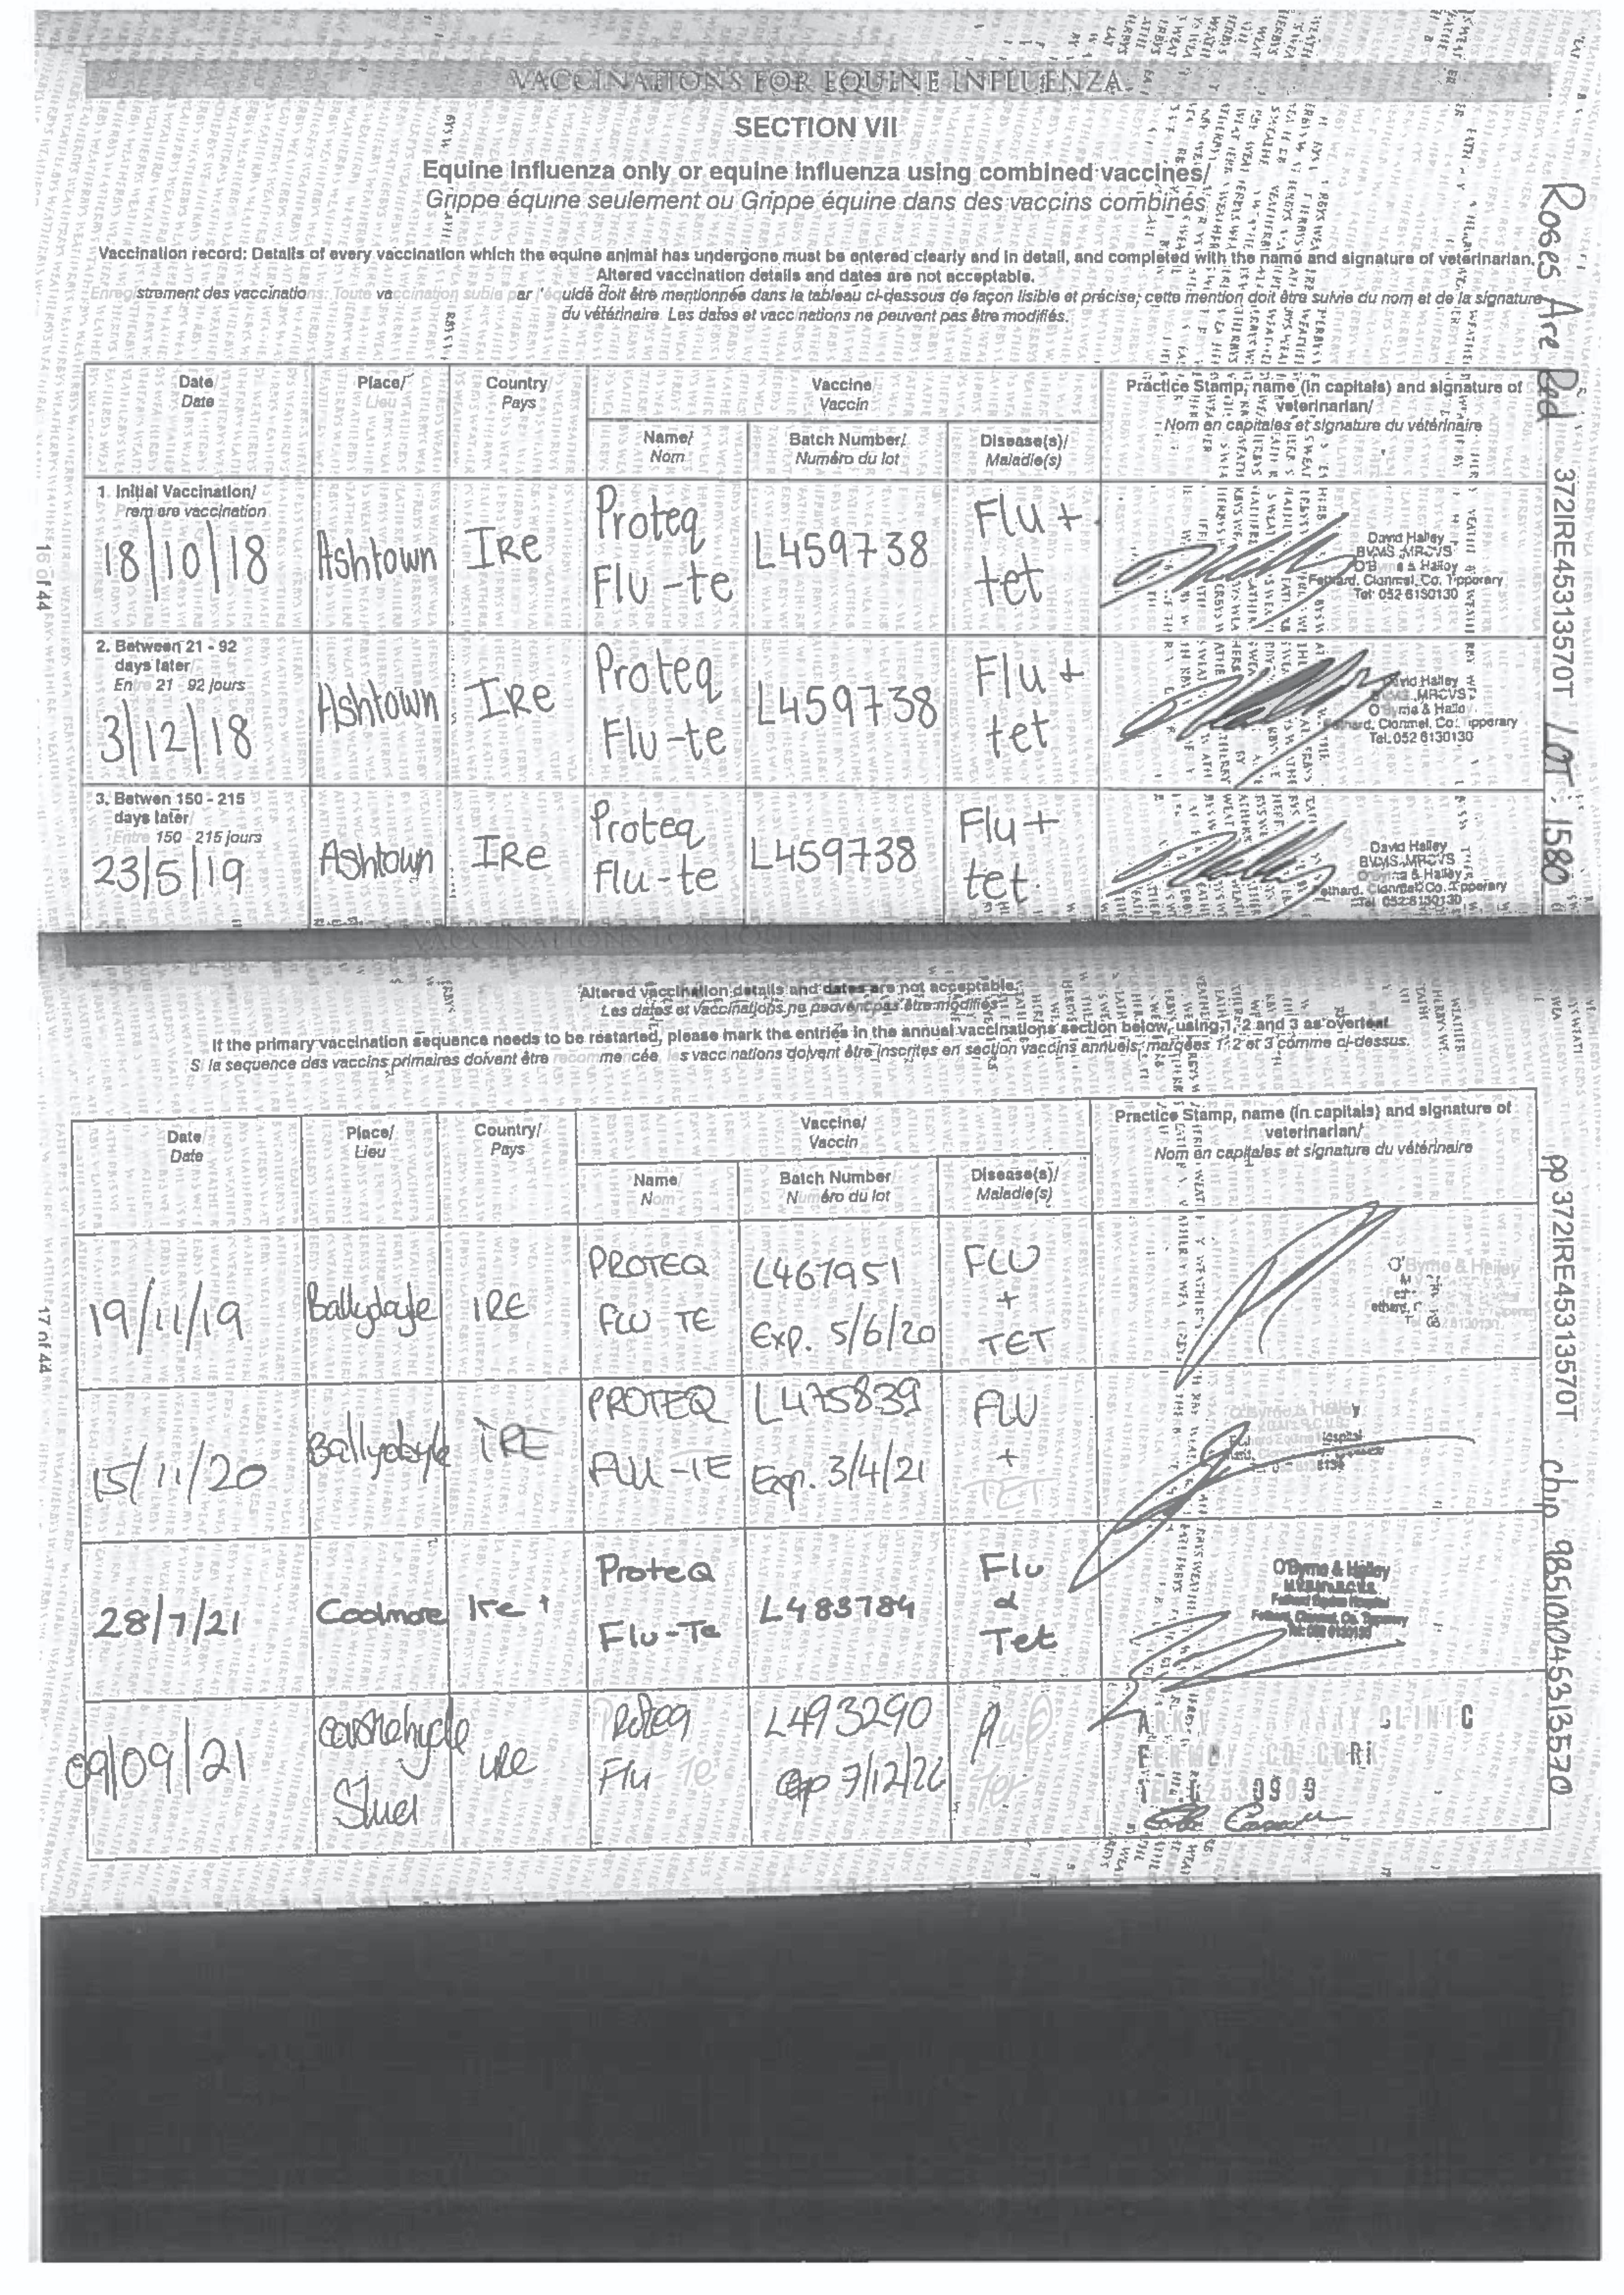 VACCINATIONS FOR EQUINE INFLUENZA
SECTION VII
Equine influenza only or equine influenza using combined vaccines/
Grippe équine seulement ou Grippe équine dans des vaccins combinés
Vaccination record: Details of every vaccination which the equine animal has undergone must be entered clearly and in detail, and completed with the name and signature of veterinarian.
Altered vaccination details and dates are not acceptable.
Enregistrement des vaccinations. Toute vaccination subie par l'équidé doit être mentionnée dans le tableau ci-dessous de façon lisible et précise; cette mention doit être suivie du nom et de la signature
du vétérinaire. Les dates et vaccinations ne peuvent pas être modifiés.
Roses Are Red 372IRE45313570T LOT: 1580
16 of 44
Date/ Place/ Country/ Vaccine/ Practice Stamp, name (in capitals) and signature of
Date Lieu Pays Vaccin veterinarian/
Nom en capitales et signature du vétérinaire
Name/ Batch Number/ Disease(s)/
Nom Numéro du lot Maladie(s)
1. Initial Vaccination/
Premiere vaccination
18/10/18 Ashtown IRe Proteq L459738 Flu +
Flu-te tet
David Halley
BVMS MRCVS
O'Byrne & Halley
Fethard, Clonmel, Co. Tipperary
Tel: 052 6130130
2. Between 21 - 92
days later/
Entre 21 - 92 jours
3/12/18 Ashtown IRe Proteq L459738 Flu +
Flu-te tet
David Halley
BVMS MRCVS
O'Byrne & Halley
Fethard, Clonmel, Co. Tipperary
Tel: 052 6130130
3. Betwen 150 - 215
days later/
Entre 150 - 215 jours
23/5/19 Ashtown IRe Proteq L459738 Flu +
Flu-te tet.
David Halley
BVMS MRCVS
O'Byrne & Halley
Fethard, Clonmel, Co. Tipperary
Tel: 052 6130130
VACCINATIONS FOR EQUINE INFLUENZA
Altered vaccination details and dates are not acceptable.
Les dates et vaccinations ne peuvent pas être modifiés.
If the primary vaccination sequence needs to be restarted, please mark the entries in the annual vaccinations section below, using 1, 2 and 3 as overleaf
Si la sequence des vaccins primaires doivent être recommencée, les vaccinations doivent être inscrites en section vaccins annuels, marqées 1, 2 et 3 comme ci-dessus.
pp 372IRE45313570T chip 985101045313570
17 of 44
Date/ Place/ Country/ Vaccine/ Practice Stamp, name (in capitals) and signature of
Date Lieu Pays Vaccin veterinarian/
Nom en capitales et signature du vétérinaire
Name/ Batch Number/ Disease(s)/
Nom Numéro du lot Maladie(s)
19/11/19 Ballydoyle IRE PROTEQ L467951 FLU
FLU TE Exp. 5/6/20 + TET
O'Byrne & Halley
15/11/20 Ballydoyle IRE PROTEQ L475839 FLU
FLU-TE Exp. 3/4/21 + TET
O'Byrne & Halley
28/7/21 Coolmore Ire Proteq L483784 Flu
Flu-Te & Tet
O'Byrne & Halley
Fethard Equine Hospital
Fethard, Clonmel, Co. Tipperary
09/09/21 Stud URE Proteq L493290 Flu
Flu-Te Tet
CLINIC
FERMOY CO CORK